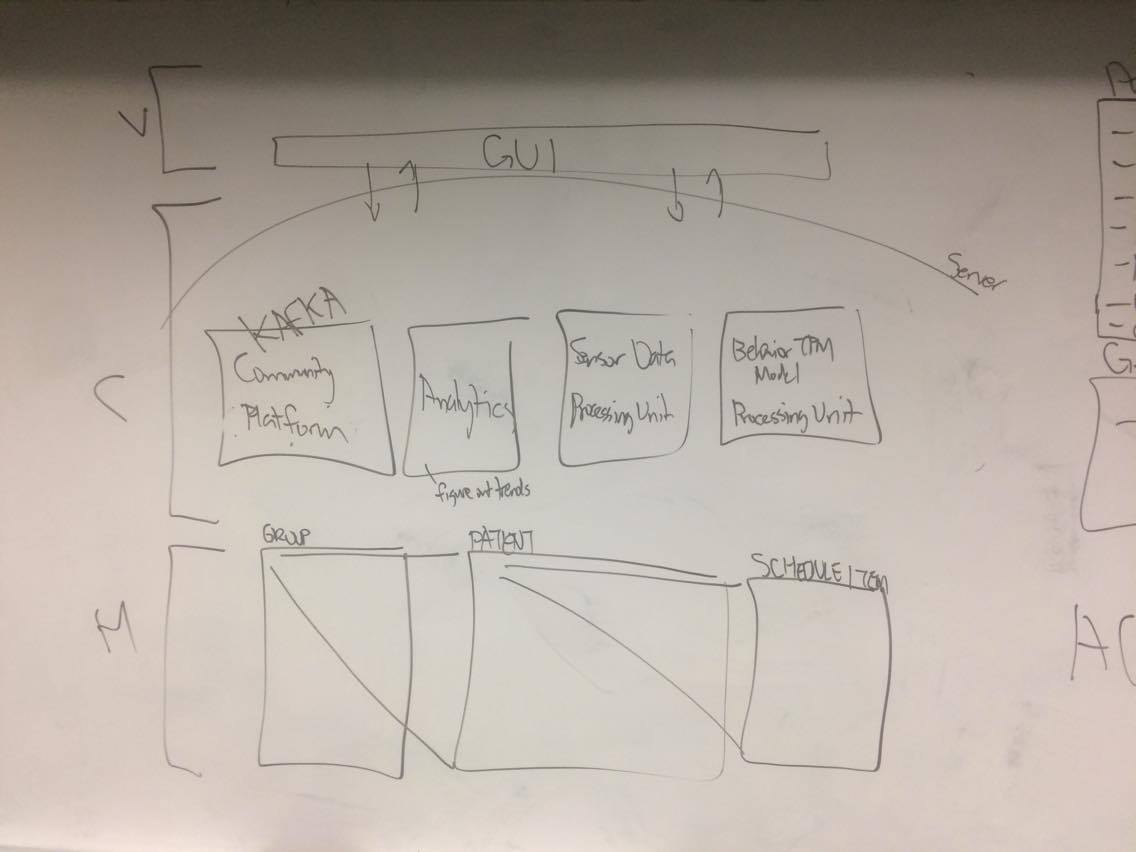 V
GUI
Server
C
KAFKA
Community
Platform
Analytics
figure out trends
Sensor Data
Processing Unit
Behavior TPM
Model
Processing Unit
M
GROUP
PATIENT
SCHEDULE ITEM